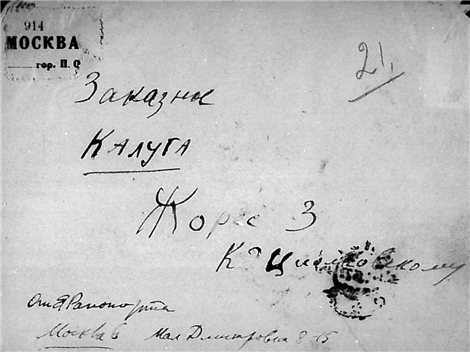 914
МОСКВА
гор. П. О
21,
Заказное
Калуга
Жорес 3
К Циолковскому
От Я Рапопорта
Москва 6 Мал Дмитровка 8-15